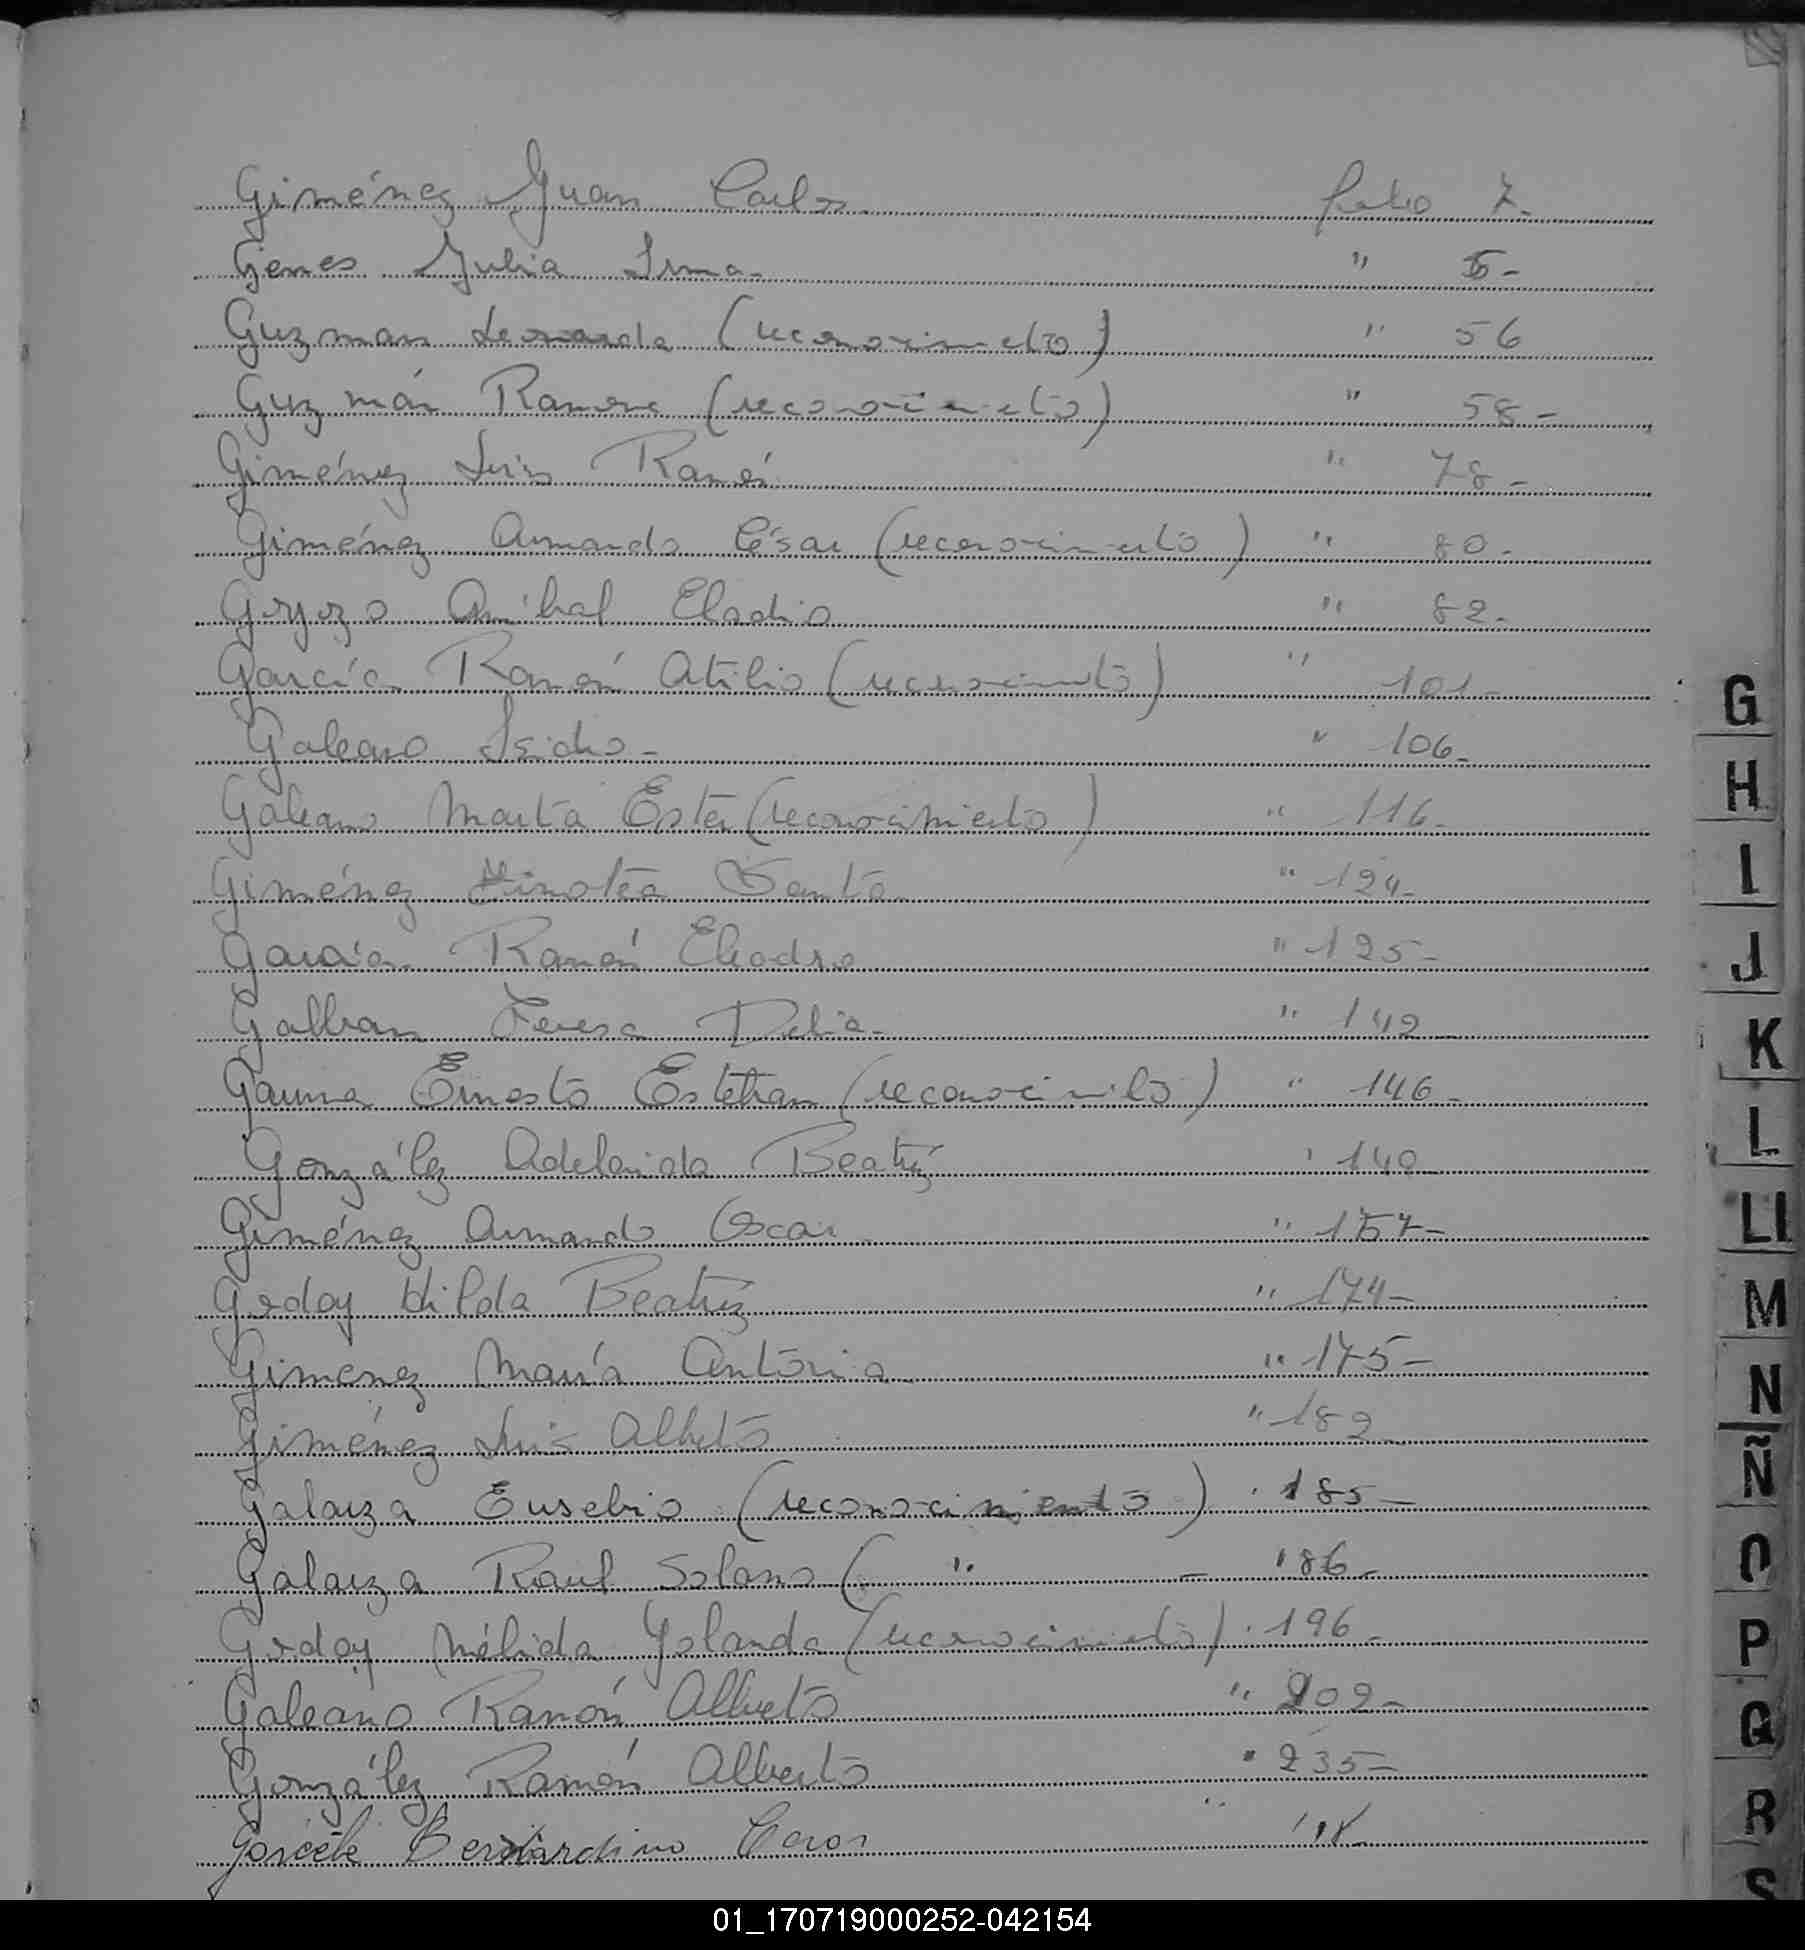 Giménez Juan Carlos folio 7-
Genes Julia Irma- " 5-
Guzman Leonarda (reconocimieto) " 56
Guzmán Ramona (reconocimieto) " 58-
Giménez Luis Ramón " 78-
Giménez Armando César (reconocimiento) " 80-
Goyozo Anibal Eladio " 82-
García Ramón Atilio (reconocimiento) " 101-
Galeano Isidro- " 106-
Galeano Marta Ester (reconocimiento) " 116-
Giménez Timotea Santa " 124-
García Ramón Eliodro " 125-
Galban Teresa Delia- " 142
Gauna Ernesto Esteban (reconocimito) " 146-
González Adelaida Beatríz "
Giménez Armando Oscar. " 157-
Godoy Hilda Beatríz " 174-
Gimenez María Antonia " 175-
Giménez Luis Alberto " 182
Galarza Eusebio (reconocimiento) " 185-
Galarza Raul Solano ( " - 186-
Godoy Nélida Yolanda (reconocimieto) " 196-
Galeano Ramón Alberto " 202-
González Ramón Alberto " 235-
Bernardino "
G
H
I
J
K
L
Ll
M
N
Ñ
O
P
Q
R
S
01_170719000252-042154